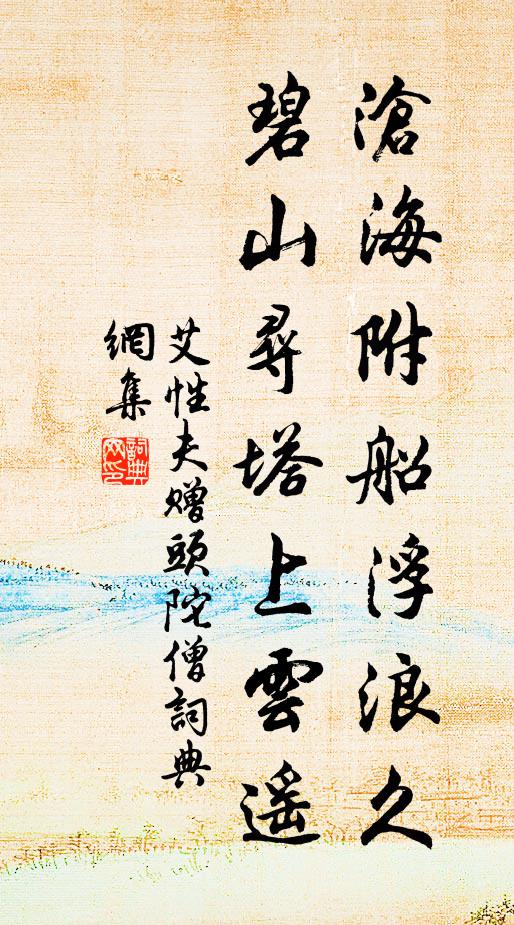 滄海附船浮浪久
碧山尋塔上雲遥
艾性夫贈頭陀僧詞典
網集
詞典網印